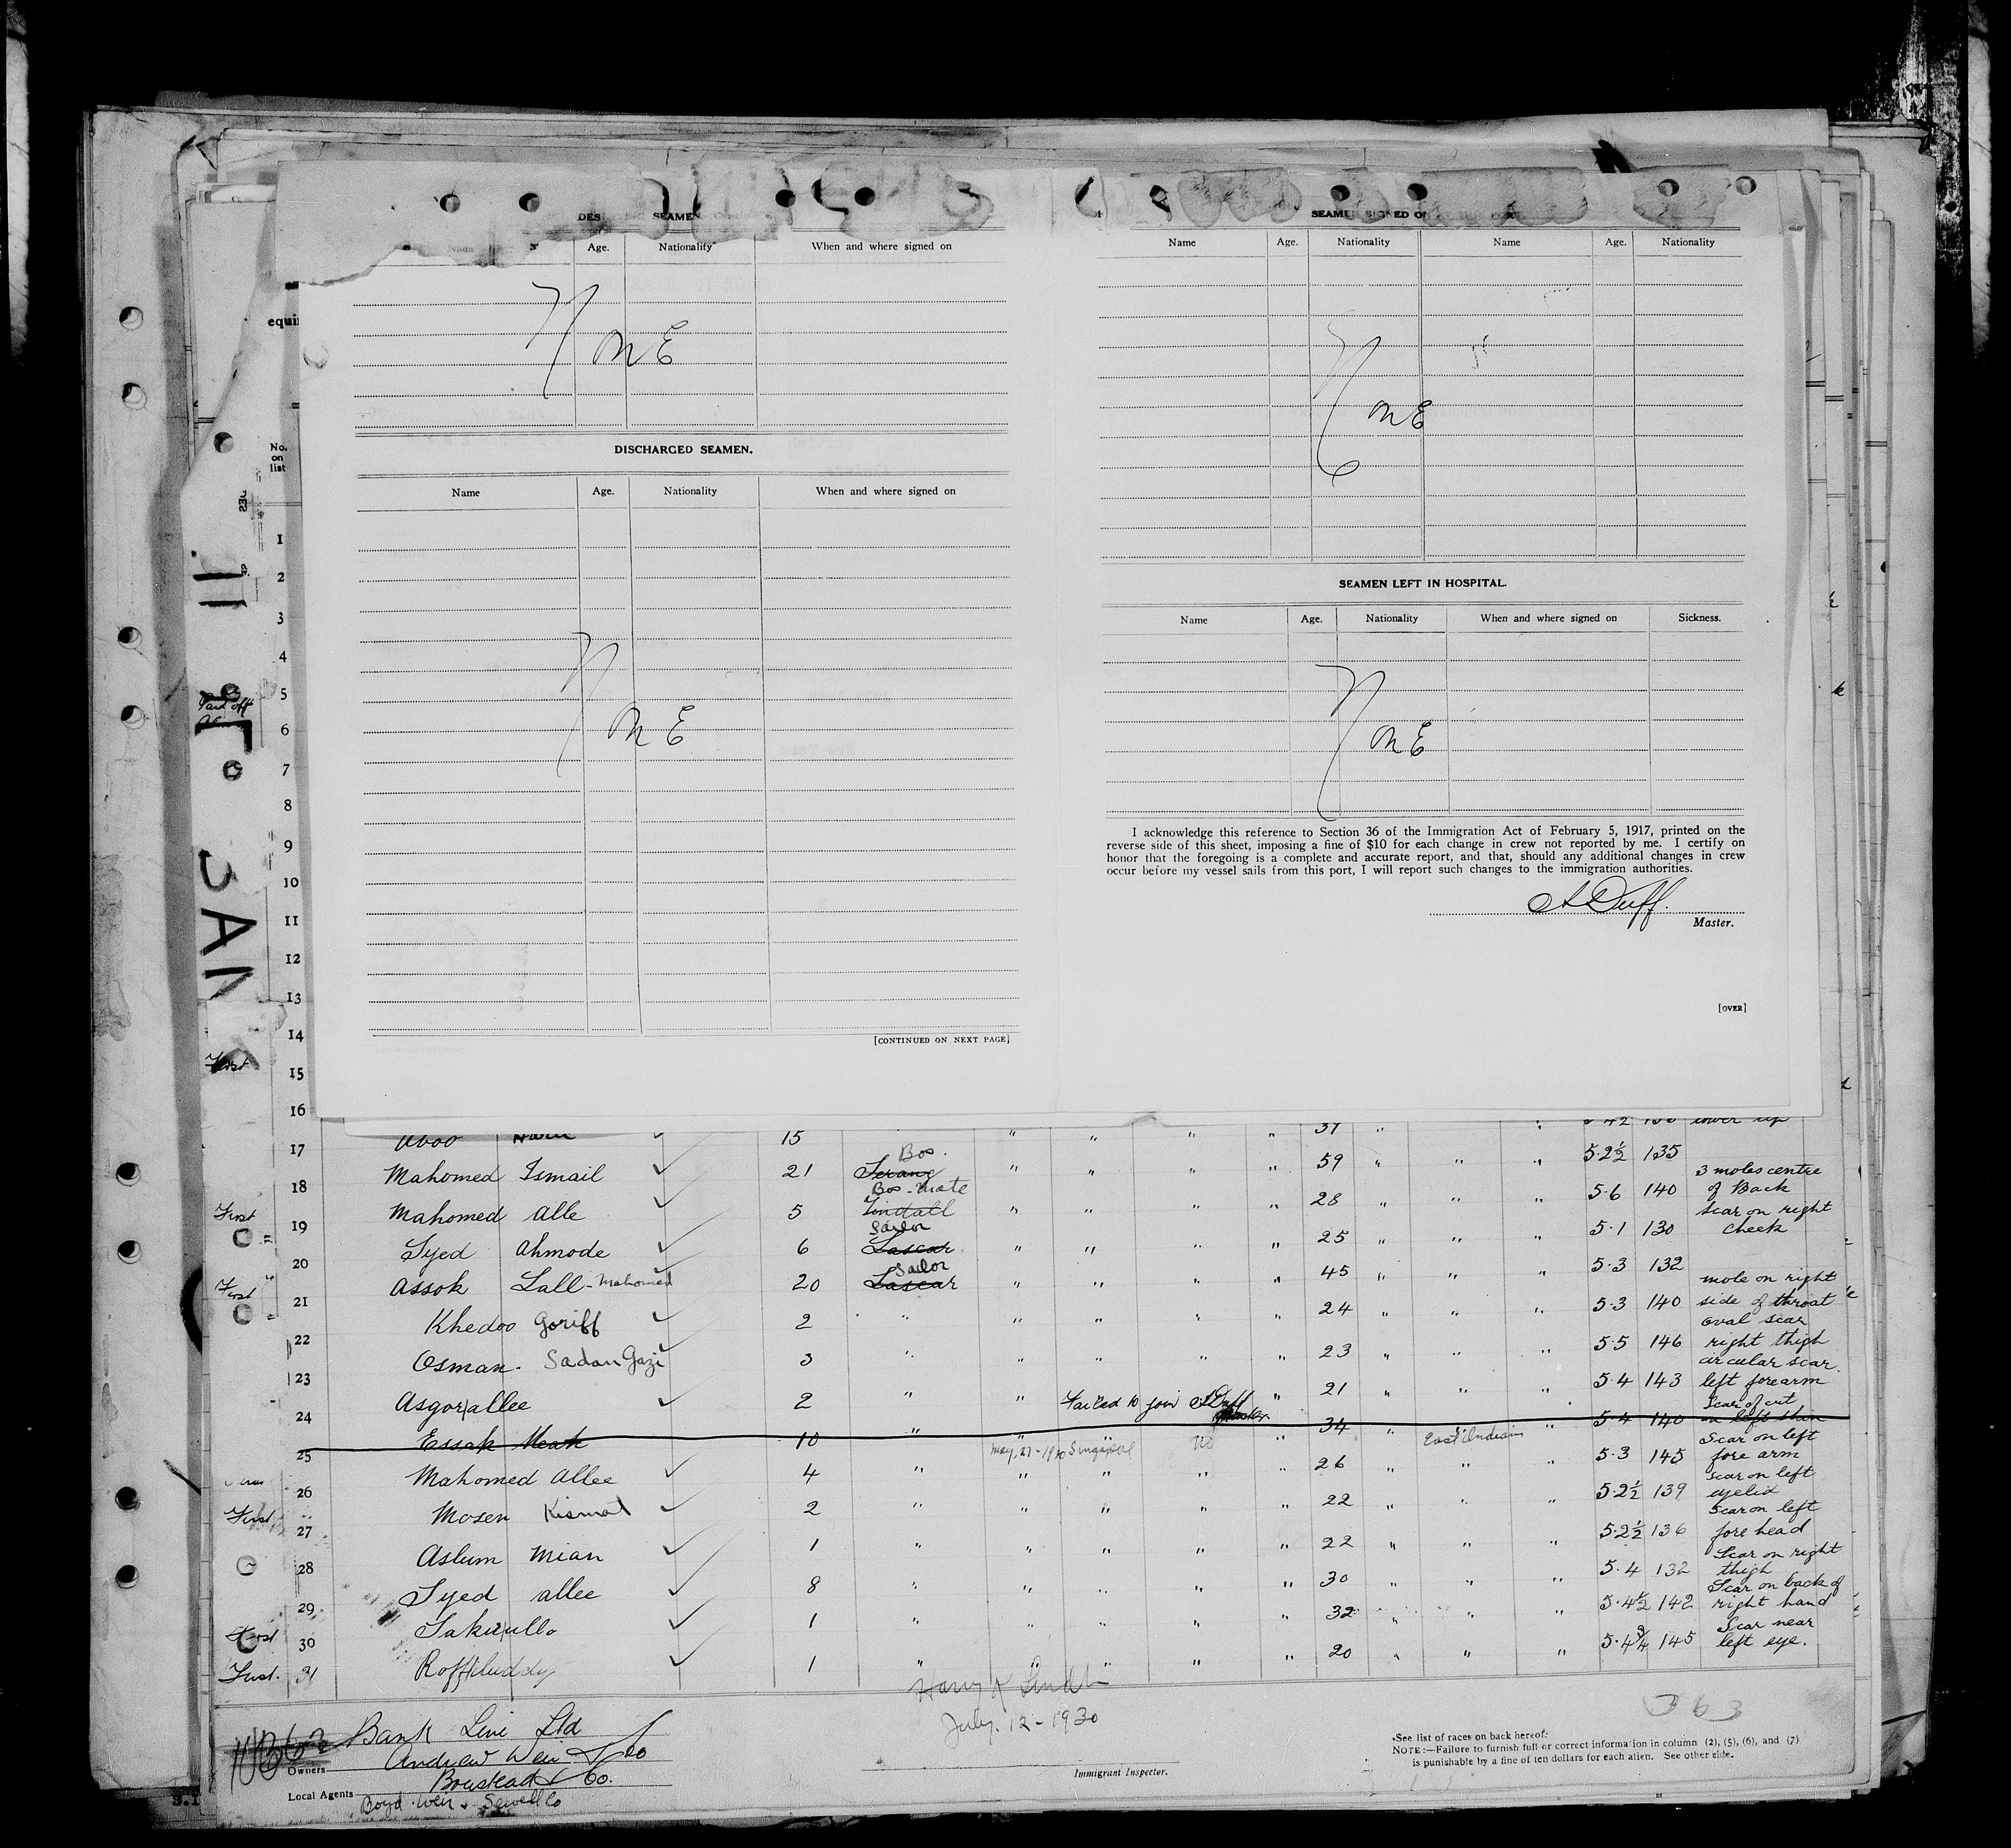 SEAMEN
Age. Nationality When and where signed on
N
ONE
DISCHARGED SEAMEN.
Name Age. Nationality When and where signed on
N
ONE
[CONTINUED ON NEXT PAGE]
SEAMEN SIGNED ON
Name Age. Nationality Name Age. Nationality
N
ONE
SEAMEN LEFT IN HOSPITAL.
Name Age. Nationality When and where signed on Sickness.
N
ONE
I acknowledge this reference to Section 36 of the Immigration Act of February 5, 1917, printed on the
reverse side of this sheet, imposing a fine of $10 for each change in crew not reported by me. I certify on
honor that the foregoing is a complete and accurate report, and that, should any additional changes in crew
occur before my vessel sails from this port, I will report such changes to the immigration authorities.
A Duff.
Master.
[OVER]
equi
No.
on
list
1
2
3
4
5
Paid off
6
7
8
9
10
11
12
13
14
First
15
16
17 Aboo 15 " " " " 37 " " lower lip
Bos.
18 Mahomed Ismail ✓ 21 Serang " " " " 59 " " " 5.2½ 135
Bos-Mate 3 moles centre
First 19 Mahomed Alle ✓ 5 Tindall " " " " 28 " " " 5.6 140 of Back
Sailor Scar on right
20 Syed Ahmode ✓ 6 Lascar " " " " 25 " " " 5.1 130 cheek
Sailor
First 21 Assok Lall-Mahomed ✓ 20 Lascar " " " " 45 " " " 5.3 132
mole on right
22 Khedoo Goriff ✓ 2 " " " " " 24 " " " 5.3 140 side of throat
oval scar
23 Osman. Sadan Gazi ✓ 3 " " " " " 23 " " " 5.5 146 right thigh
circular scar
24 Asgor allee ✓ 2 " " Failed to join A Duff Master. " 21 " " " 5.4 143 left forearm
Scar of cut
25 Essak Meah 10 " " " " 34 " " 5.4 140 on left shin
May. 27-1930 Singapore No East Indian Scar on left
26 Mahomed Allee ✓ 4 " " " " " 26 " " " 5.3 145 fore arm
Scar on left
First 27 Mosen Kismat ✓ 2 " " " " " 22 " " " 5.2½ 139 eyelid
Scar on left
28 Aslum Mian ✓ 1 " " " " " 22 " " " 5.2½ 136 fore head
Scar on right
29 Syed Allee ✓ 8 " " " " " 30 " " " 5.4 132 thigh
Scar on back of
First 30 ✓ 1 " " " " " 32 " " " 5.4½ 142 right hand
Scar near
First. 31 ✓ 1 " " " " " 20 " " " 5.4¾ 145 left eye.
July. 12-1930
Immigrant Inspector.
363
Bank Line Ltd
Owners Andrew Weir & Co
Boustead & Co.
Local Agents Boyd. Weir & Sewell Co
See list of races on back hereof.
NOTE:—Failure to furnish full or correct information in column (2), (5), (6), and (7)
is punishable by a fine of ten dollars for each alien. See other side.